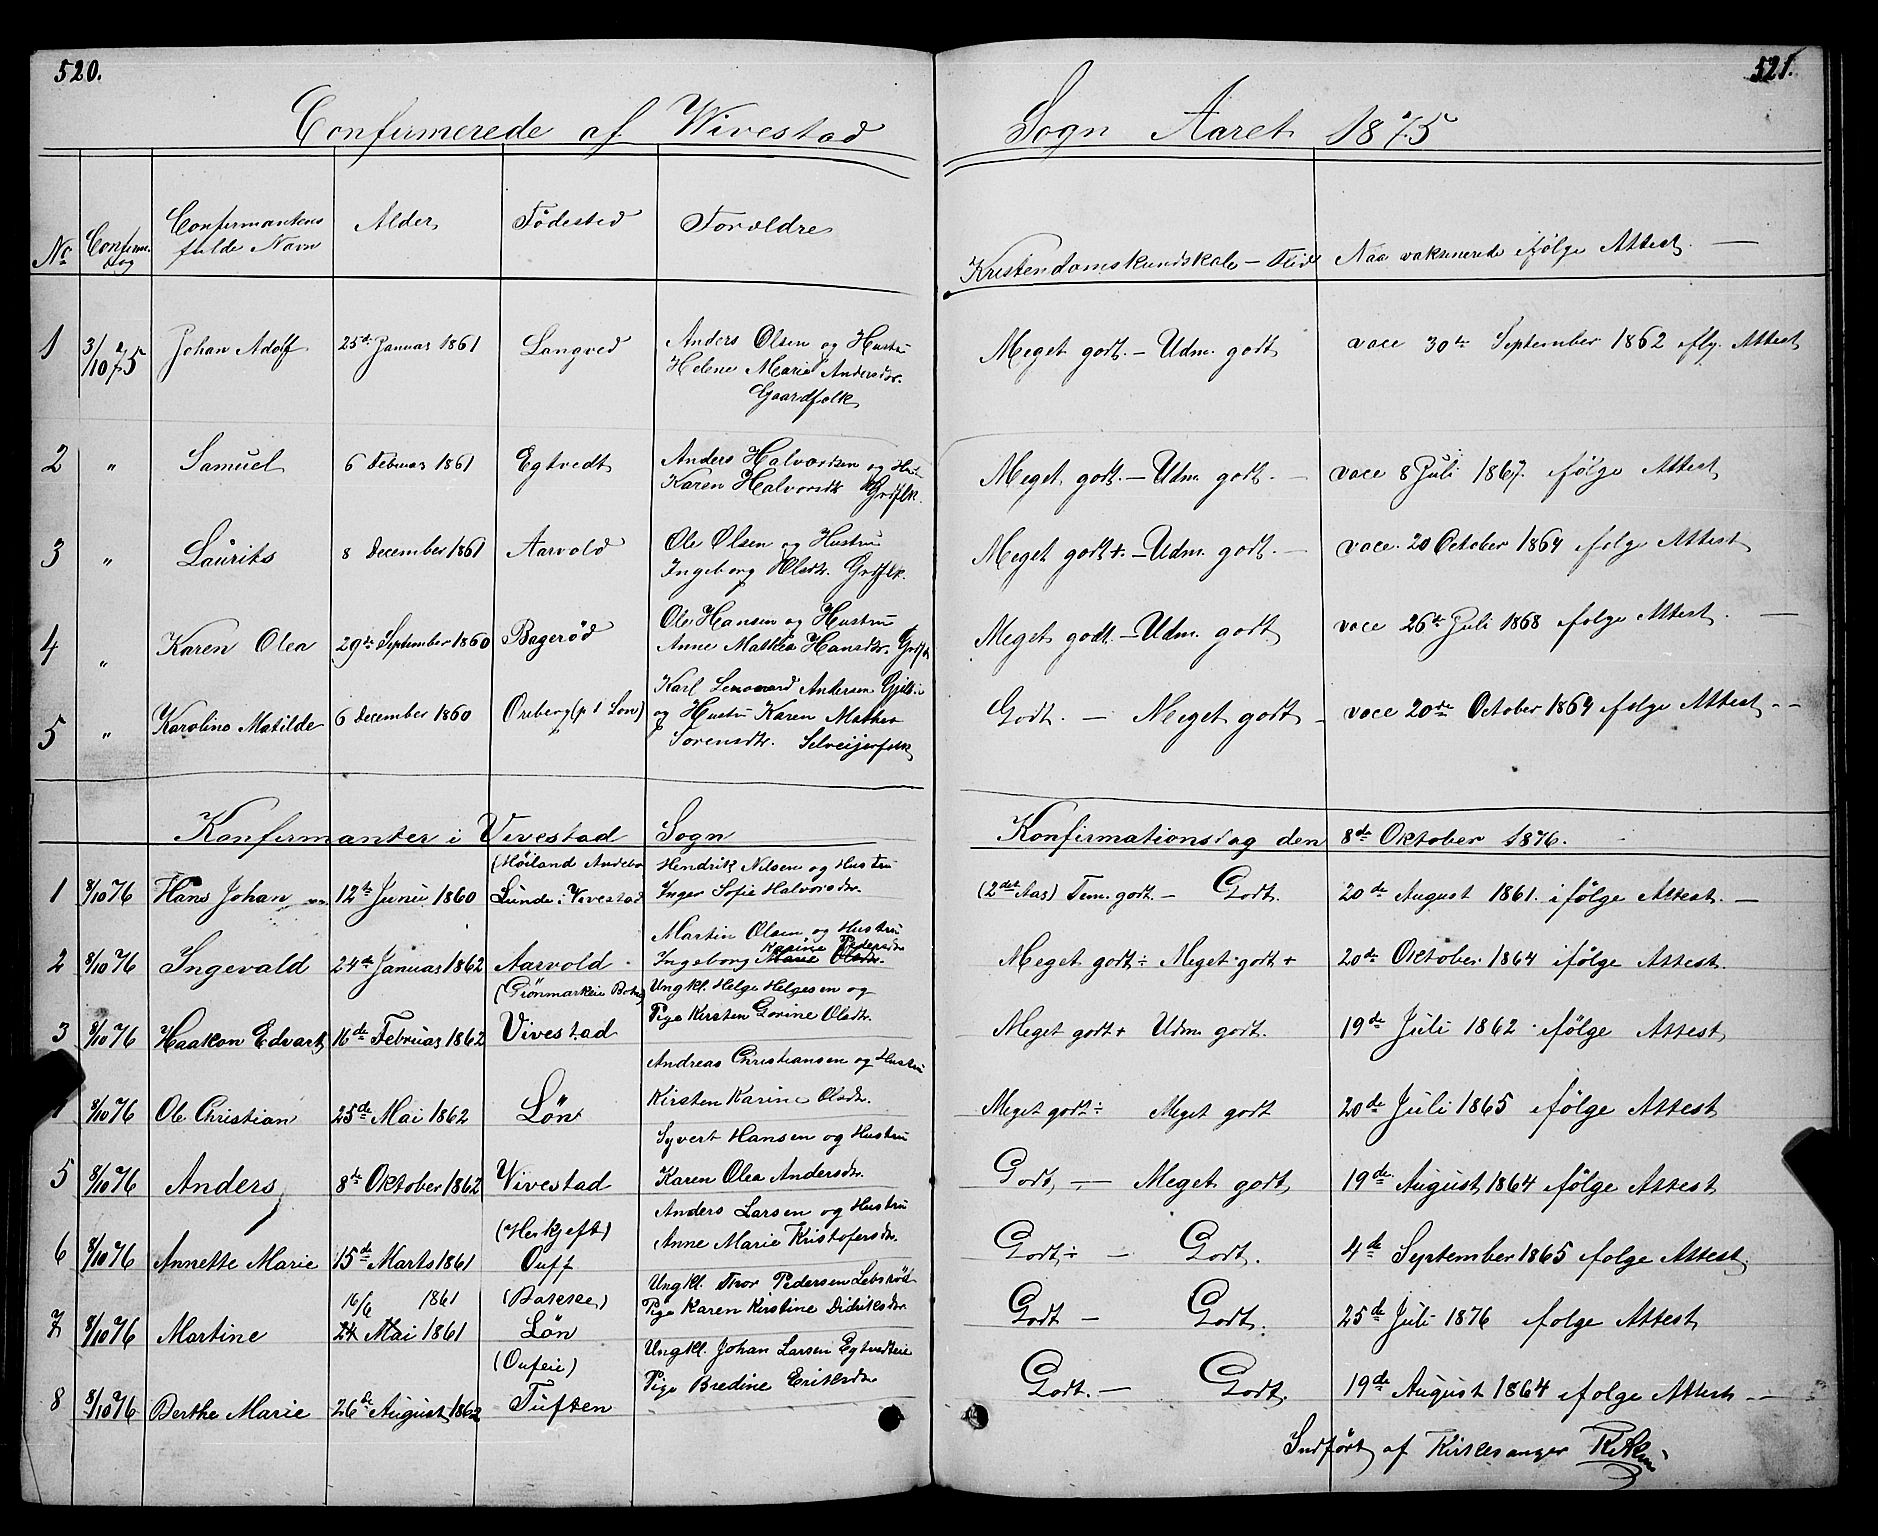 520.
Confirmerede af Vivestad
No Confirm. dag Confirmantens fulde Navn Alder Födested Forældre
1 3/10 75 Johan Adolf 25de Januar 1861 Langved Anders Olsen og Hustru
Helene Marie Andersdtr.
Gaardfolk
2 " Samuel 6 Februar 1861 Egtvedt Anders Halvorsen og Hust.
Karen Halvorsdtr Grdflk.
3 " Laurits 8 December 1861 Aarvold Ole Olsen og Hustru
Ingeborg Olsdtr. Grdflk.
4 " Karen Olea 29de September 1860 Bagerød Ole Hansen og Hustru
Anne Mathea Hansdtr. Grdflk
5 " Karoline Matilde 6 December 1860 Oreberg (p t Løn) Karl Lennard Andersen
og Hustru Karen Mathea
Sorensdtr. Selveijerfolk
Konfirmanter i Vivestad Sogn
1 8/10 76 Hans Johan 12te Juni 1860 (Høiland Andebu) Lunde i Vivestad Hendrik Nilsen og Hustru
Inger Sofie Halvorsdtr.
2 8/10 76 Ingevald 24de Januar 1862 Aarvold Martin Olsen og Hustru
Karine Pedersdtr
Ingeborg Marie Olsdtr.
3 8/10 76 Haakon Edvart 16de Februar 1862 (Grönmarkeie Botne) Vivestad Ungkl. Helge Helgesen og
Pige Kirsten Gorine Olsdtr.
8/10 76 Ole Christian 25de Mai 1862 Løn Andreas Christiansen og Hustru
Kirsten Karine Olsdtr.
5 8/10 76 Anders 8de Oktober 1862 Vivestad Syvert Hansen og Hustru
Karen Olea Andersdtr.
6 8/10 76 Annette Marie 15de Marts 1861 (Heikjeft) Ouff Anders Larsen og Hustru
Anne Marie Kristofersdtr.
7 8/10 76 Martine 16/6 1861 24 Mai 1861 (Bakske) Løn Ungkl. Thor Pedersen
Pige Karen Kirstine Didriksdtr.
8 8/10 76 Berthe Marie 26de August 1862 (Oufeie) Tuften Ungkl. Johan Larsen Egtvedteie
Pige Bredine Eriksdtr
521.
Sogn Aaret 1875
Kristendomskundskab – Flid Naar vaksinerede ifölge Attest. —
Meget godt. – Udm. godt vacc 30te September 1862 iflg. Attest
Meget godt. – Udm. godt. – vacc 8 Juli 1867. ifölge Attest
Meget godt +. – Udm. godt. – vacc. 20 October 1864 ifolge Attest
Meget godt. – Udm. godt vacc 26de Juli 1868 ifolge Attest. —
Godt. – Meget godt – vacc 20de October 1864 ifolge Attest - -
Konfirmationsdag den 8de Oktober 1876.
(2det Aar) Tem. godt. – Godt. 20de August 1861. ifölge Attest. —
Meget godt ÷ Meget godt + 20de Oktober 1864 ifölge Attest.
Meget godt + Udm. godt. 19de Juli 1862 ifölge Attest
Meget godt ÷ Meget godt 20de Juli 1865 ifölge Attest
Godt – Meget godt 19de August 1864 ifölge Attest
Godt ÷ – Godt. 4de September 1865 ifolge Attest.
Godt – Godt. 25de Juli 1876 ifolge Attest
Godt. – Godt. 19de August 1864 ifolge Attest —
Indført af Kirkesanger